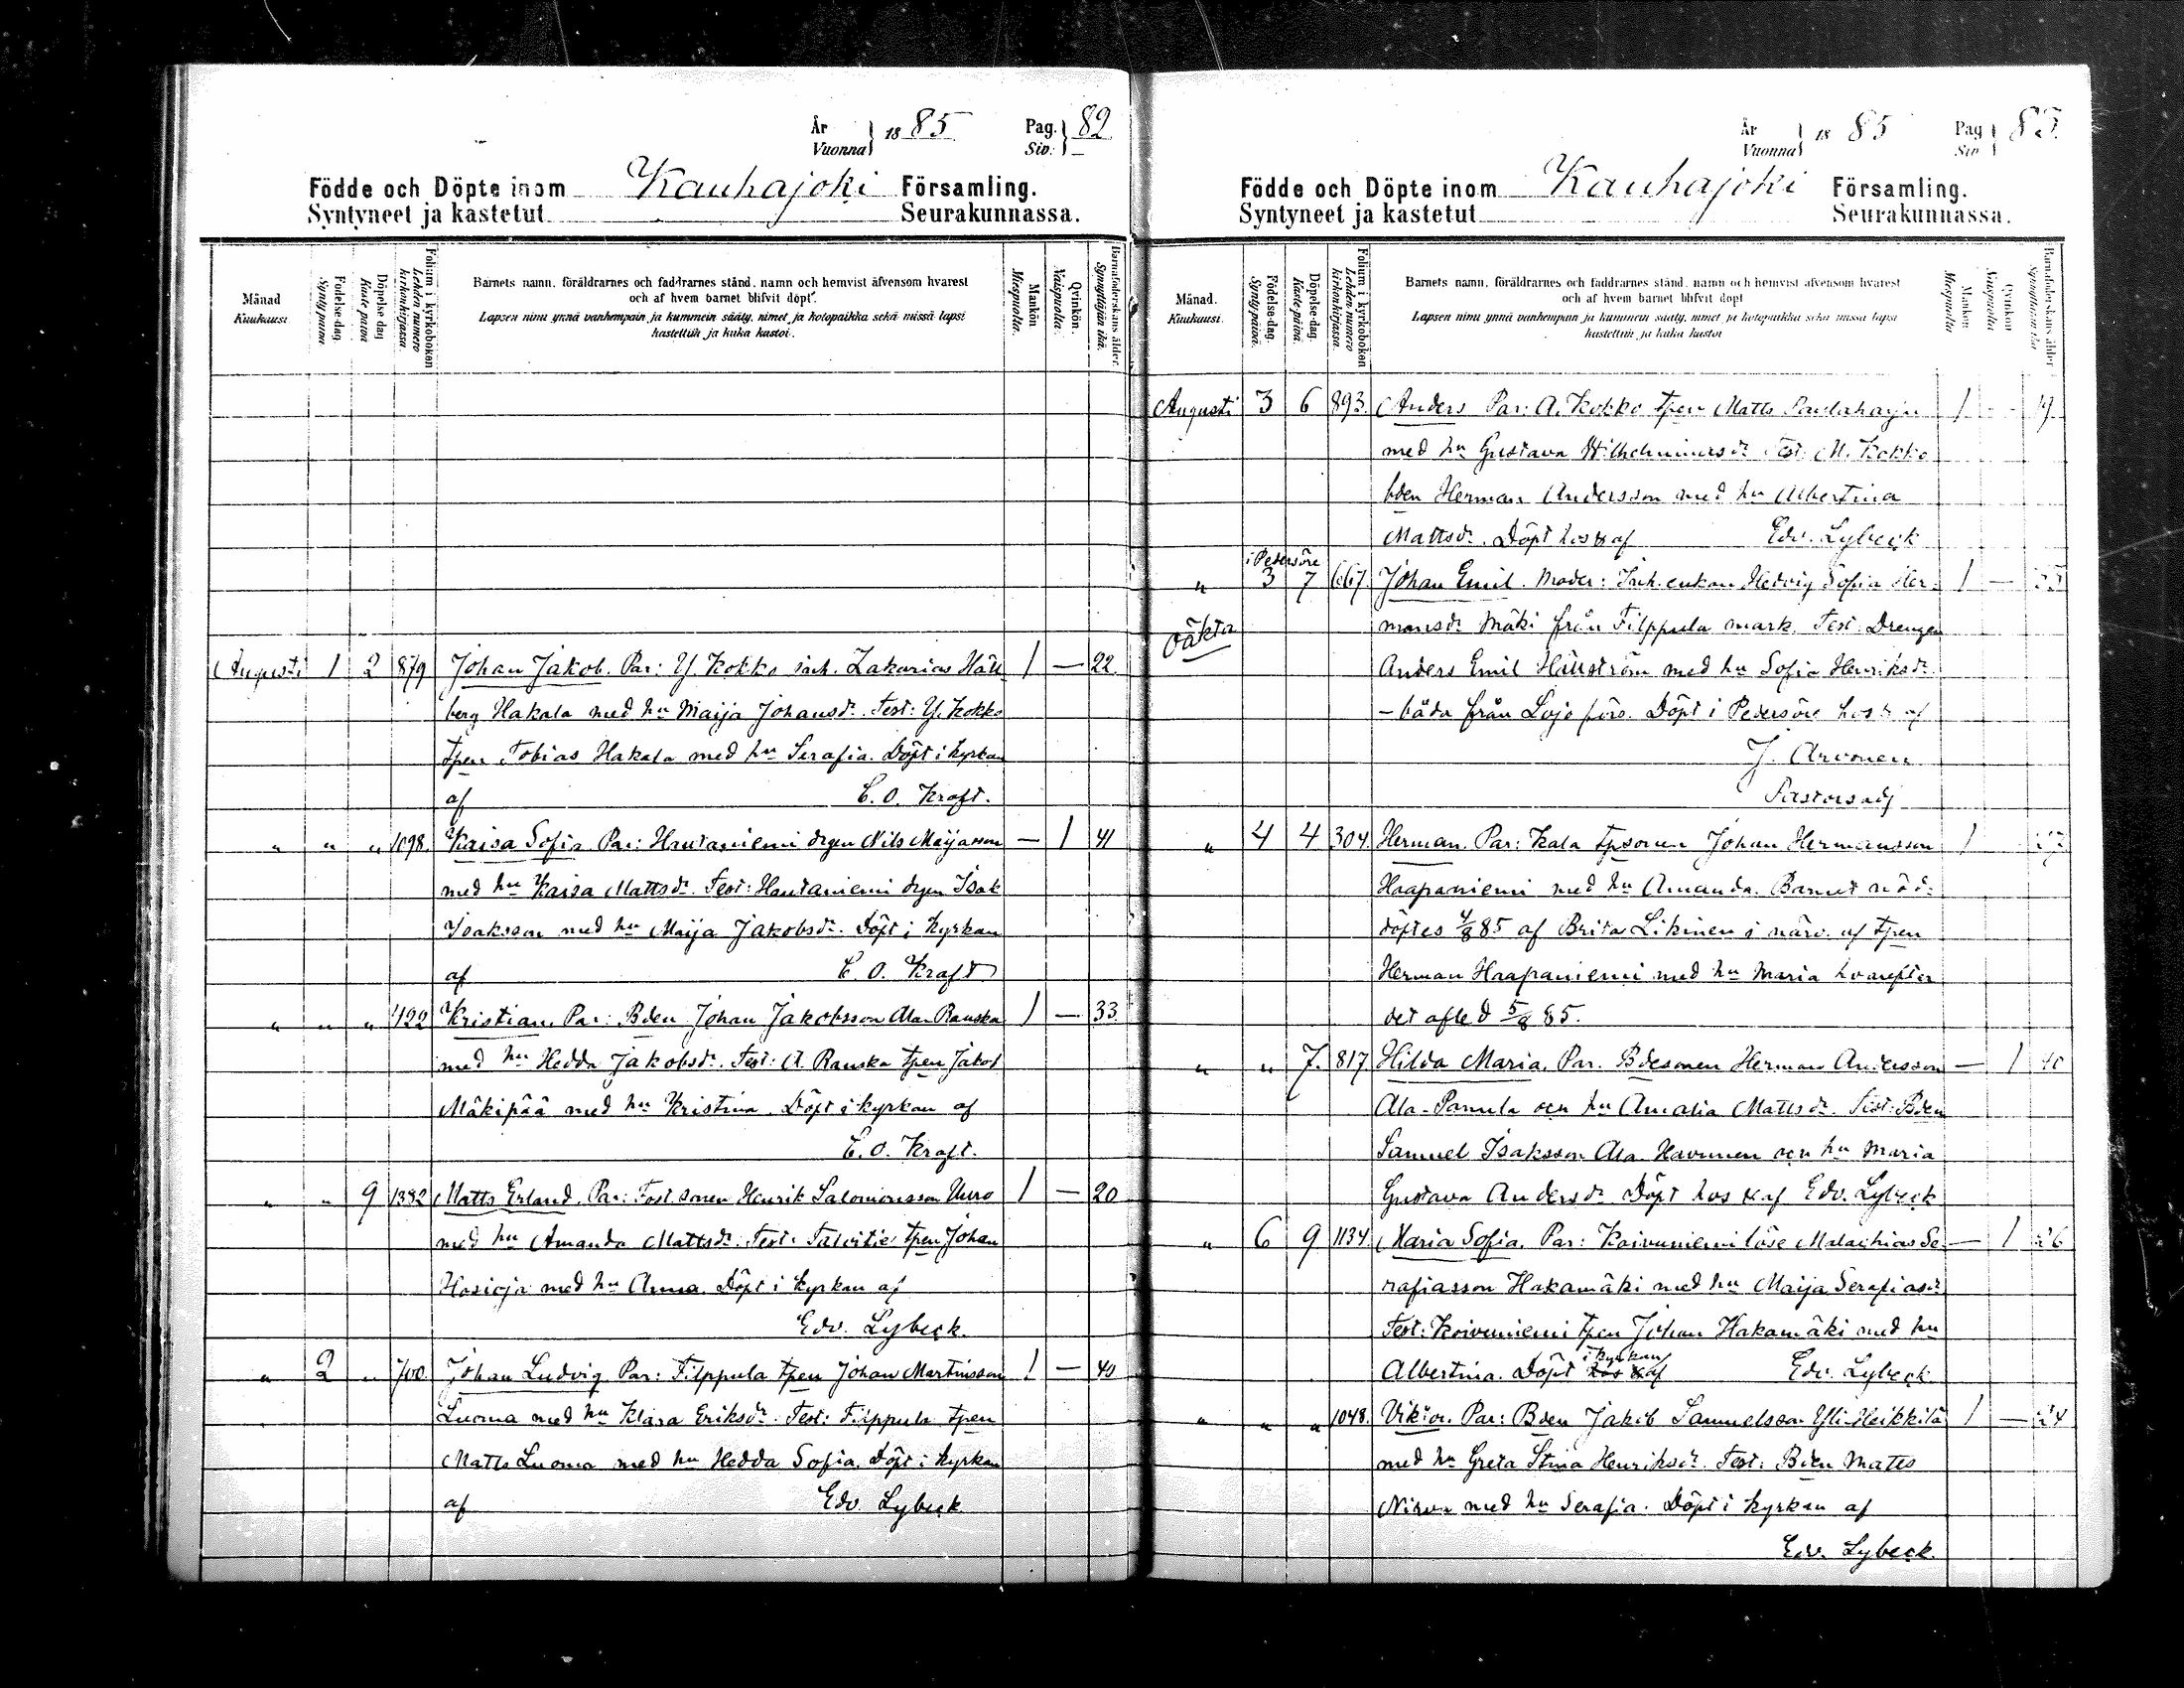 År
Vuonna } 1885. Pag.
Siv. } 82
Födde och Döpte inom Kauhajoki Församling.
Syntyneet ja kastetut Seurakunnassa.
Månad
Kuukausi
Födelse-dag.
Syntypäivä.
Döpelse dag
Kaste-päivä
Folium i kyrkoboken
Lehden numero kirkonkirjassa.
Barnets namn, föräldrarnes och faddrarnes stånd, namn och hemvist äfvensom hvarest
och af hvem barnet blifvit döpt.
Lapsen nimi ynnä vanhempain ja kummein sääty, nimet ja kotopaikka sekä missä lapsi
kastettiin ja kuka kastoi.
Mankön
Miespuolia.
Qvinkön.
Naispuolia.
Barnaföderskans ålder.
Synnyttäjän ikä.
Augusti 1 2 879 Johan Jakob. Par: Y. Kokko inh. Zakarias Häll 1 — 22.
berg Hakala med hu Maija Johansdr. Test: Y. Kokko
tpen Tobias Hakala med hu Serafia. Döpt i kyrkan
af C. O. Kraft.
„ „ „ 1098. Kaisa Sofia. Par: Hautaniemi drgen Nils Maijasson — 1 41
med hu Kaisa Mattsdr. Test: Hautaniemi drgen Isak
Isaksson med hu Maija Jakobsdr. Döpt i kyrkan
af C. O. Kraft
„ „ „ 422 Kristian. Par: Bden Johan Jakobsson Ala-Rauska 1 — 33.
med hu Hedda Jakobsdr. Test: A. Rauska tpen Jakob
Mäkipää med hu Kristina. Döpt i kyrkan af
C. O. Kraft.
„ „ 9 1382 Matts Erland. Par: Fost.sonen Henrik Salomonsson Uuro 1 — 20
med hu Amanda Mattsdr. Test: Talvitie tpen Johan
Hosioja med hu Anna. Döpt i kyrkan af
Edv. Lybeck.
„ 2 „ 700. Johan Ludvig. Par: Filppula tpen Johan Martinsson 1 — 40
Luoma med hu Klara Eriksdr. Test: Filppula tpen
Matts Luoma med hu Hedda Sofia. Döpt i kyrkan
af Edv. Lybeck
År
Vuonna } 1885 Pag
Siv } 83.
Födde och Döpte inom Kauhajoki Församling.
Syntyneet ja kastetut Seurakunnassa.
Månad.
Kuukausi.
Födelse-dag.
Syntypäivä.
Döpelse-dag.
Kaste-päivä.
Folium i kyrkoboken
Lehden numero kirkonkirjassa.
Barnets namn, föräldrarnes och faddrarnes stånd, namn och hemvist äfvensom hvarest
och af hvem barnet blifvit döpt
Lapsen nimi ynnä vanhempain ja kummein sääty, nimet ja kotopaikka sekä missä lapsi
kastettiin ja kuka kastoi
Mankön
Miespuolia
Qvinkön
Naispuolia
Barnaföderskans ålder
Synnyttäjän ikä
Augusti 3 6 893. Anders Par: A. Kokko tpen Matts 1 -
med hu Gustava Wilhelmiinasdr Test: M. Kokko
bden Herman Andersson med hu Albertina
Mattsdr. Döpt hos & af Edv. Lybeck
i Pedersöre
„ 3 7 667. Johan Emil. Moder: Inh.enkan Hedvig Sofia Her- 1 —
oäkta
mansdr Mäki från Filppula mark. Test: Drengen
Anders Emil Hällström med hu Sofia Henriksdr
- båda från Lojo förs. Döpt i Pedersöre hos & af
J. Arvonen
Pastorsadj
„ 4 4 304. Herman. Par: Kala tpsonen Johan Hermansson 1
Haapaniemi med hu Amanda. Barnet nöd-
döptes 4/8 85 af Brita Likinen i närv. af tpen
Herman Haapaniemi med hu Maria hvarefter
det afled 5/8 85.
„ „ 7. 817 Hilda Maria. Par. Bdesonen Herman Andersson — 1 40
Ala-Panula och hu Amalia Mattsdr. Test: Bden
Samuel Isaksson Ala-Havunen och hu Maria
Gustava Andersdr Döpt hos & af Edv. Lybeck
„ 6 9 1134. Maria Sofia. Par: Koivuniemi löse Malachias Se- — 1 26
rafiasson Hakamäki med hu Maija Serafiasdr
Test: Koivuniemi tpen Johan Hakamäki med hu
i kyrkan
Albertina. Döpt hos & af Edv. Lybeck
„ „ „ 1048. Viktor. Par: Bden Jakob Samuelsson Yli-Heikkilä 1 — 24
med hu Greta Stina Henriksdr. Test: Bden Matts
Nirva med hu Serafia. Döpt i kyrkan af
Edv. Lybeck.